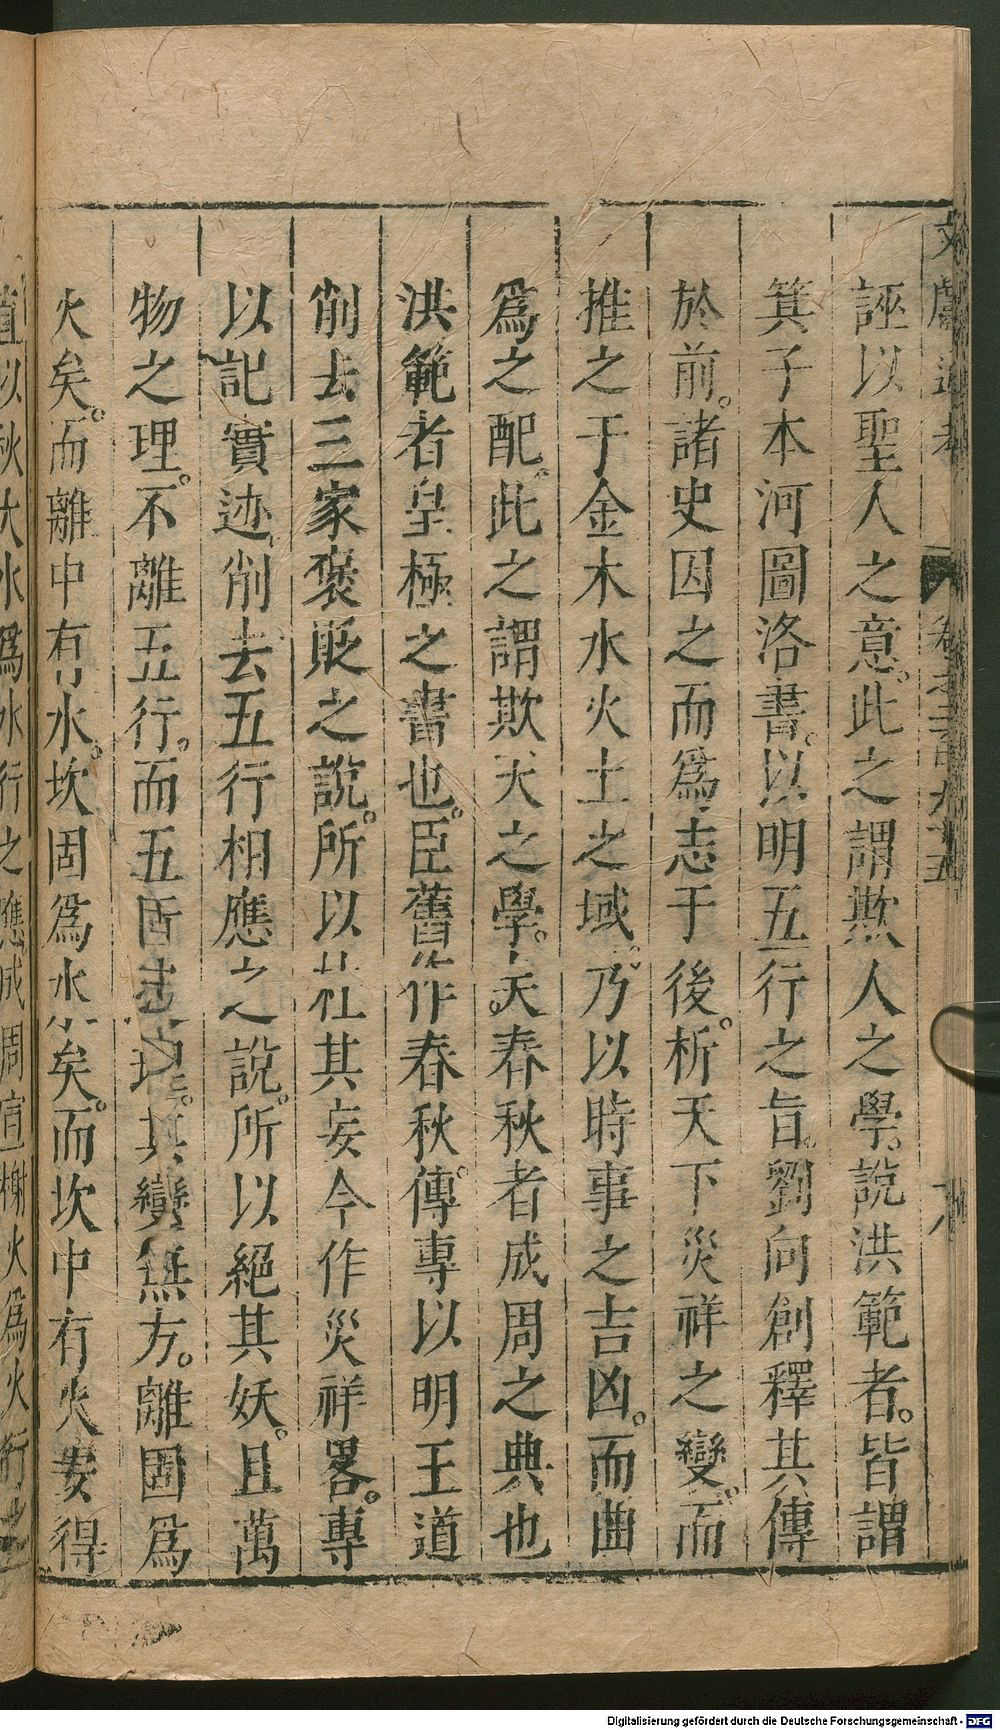 誣以聖人之意。此之謂欺人之學。說洪範者。皆謂
箕子本河圖洛書。以明五行之旨。劉向創釋其傳
於前。諸史因之而爲志于後。析天下災祥之變。而
推之于金木水火土之域。乃以時事之吉凶。而曲
爲之配。此之謂欺天之學。夫春秋者成周之典也
洪範者皇極之書也。臣舊作春秋傳。專以明王道
削去三家褒貶之說。所以杜其妄今作災祥畧。專
以記實迹。削去五行相應之說。所以絕其妖。且萬
物之理。不離五行。而五 其變無方。離固爲
火矣。而離中有水。坎固爲水矣。而坎中有火妻得
直以秋大水爲水行之應成周宣榭火爲火行
Digitalisierung gefördert durch die Deutsche Forschungsgemeinschaft - DFG